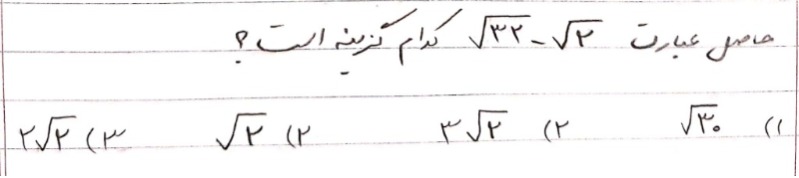 حاصل عبارت √۳۲-√۲ کدام گزینه است؟
۱) √۳۰ ۲) ۳√۲ ۲) √۲ ۳) ۲√۲